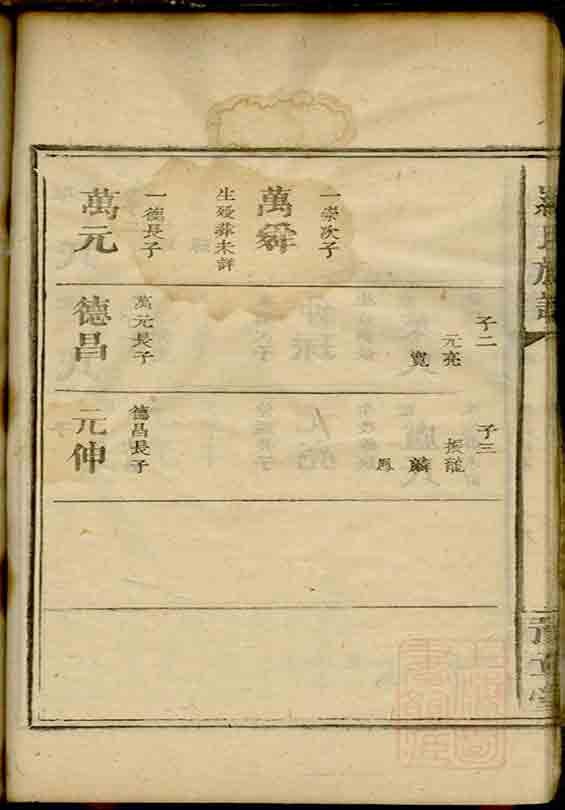 羅氏族譜
一崇次子
萬舜
生殁葬未詳
一德長子
萬元
子二
元亮
寬
萬元長子
德昌
子三
振龍
麟
鳳
德昌長子
元伸